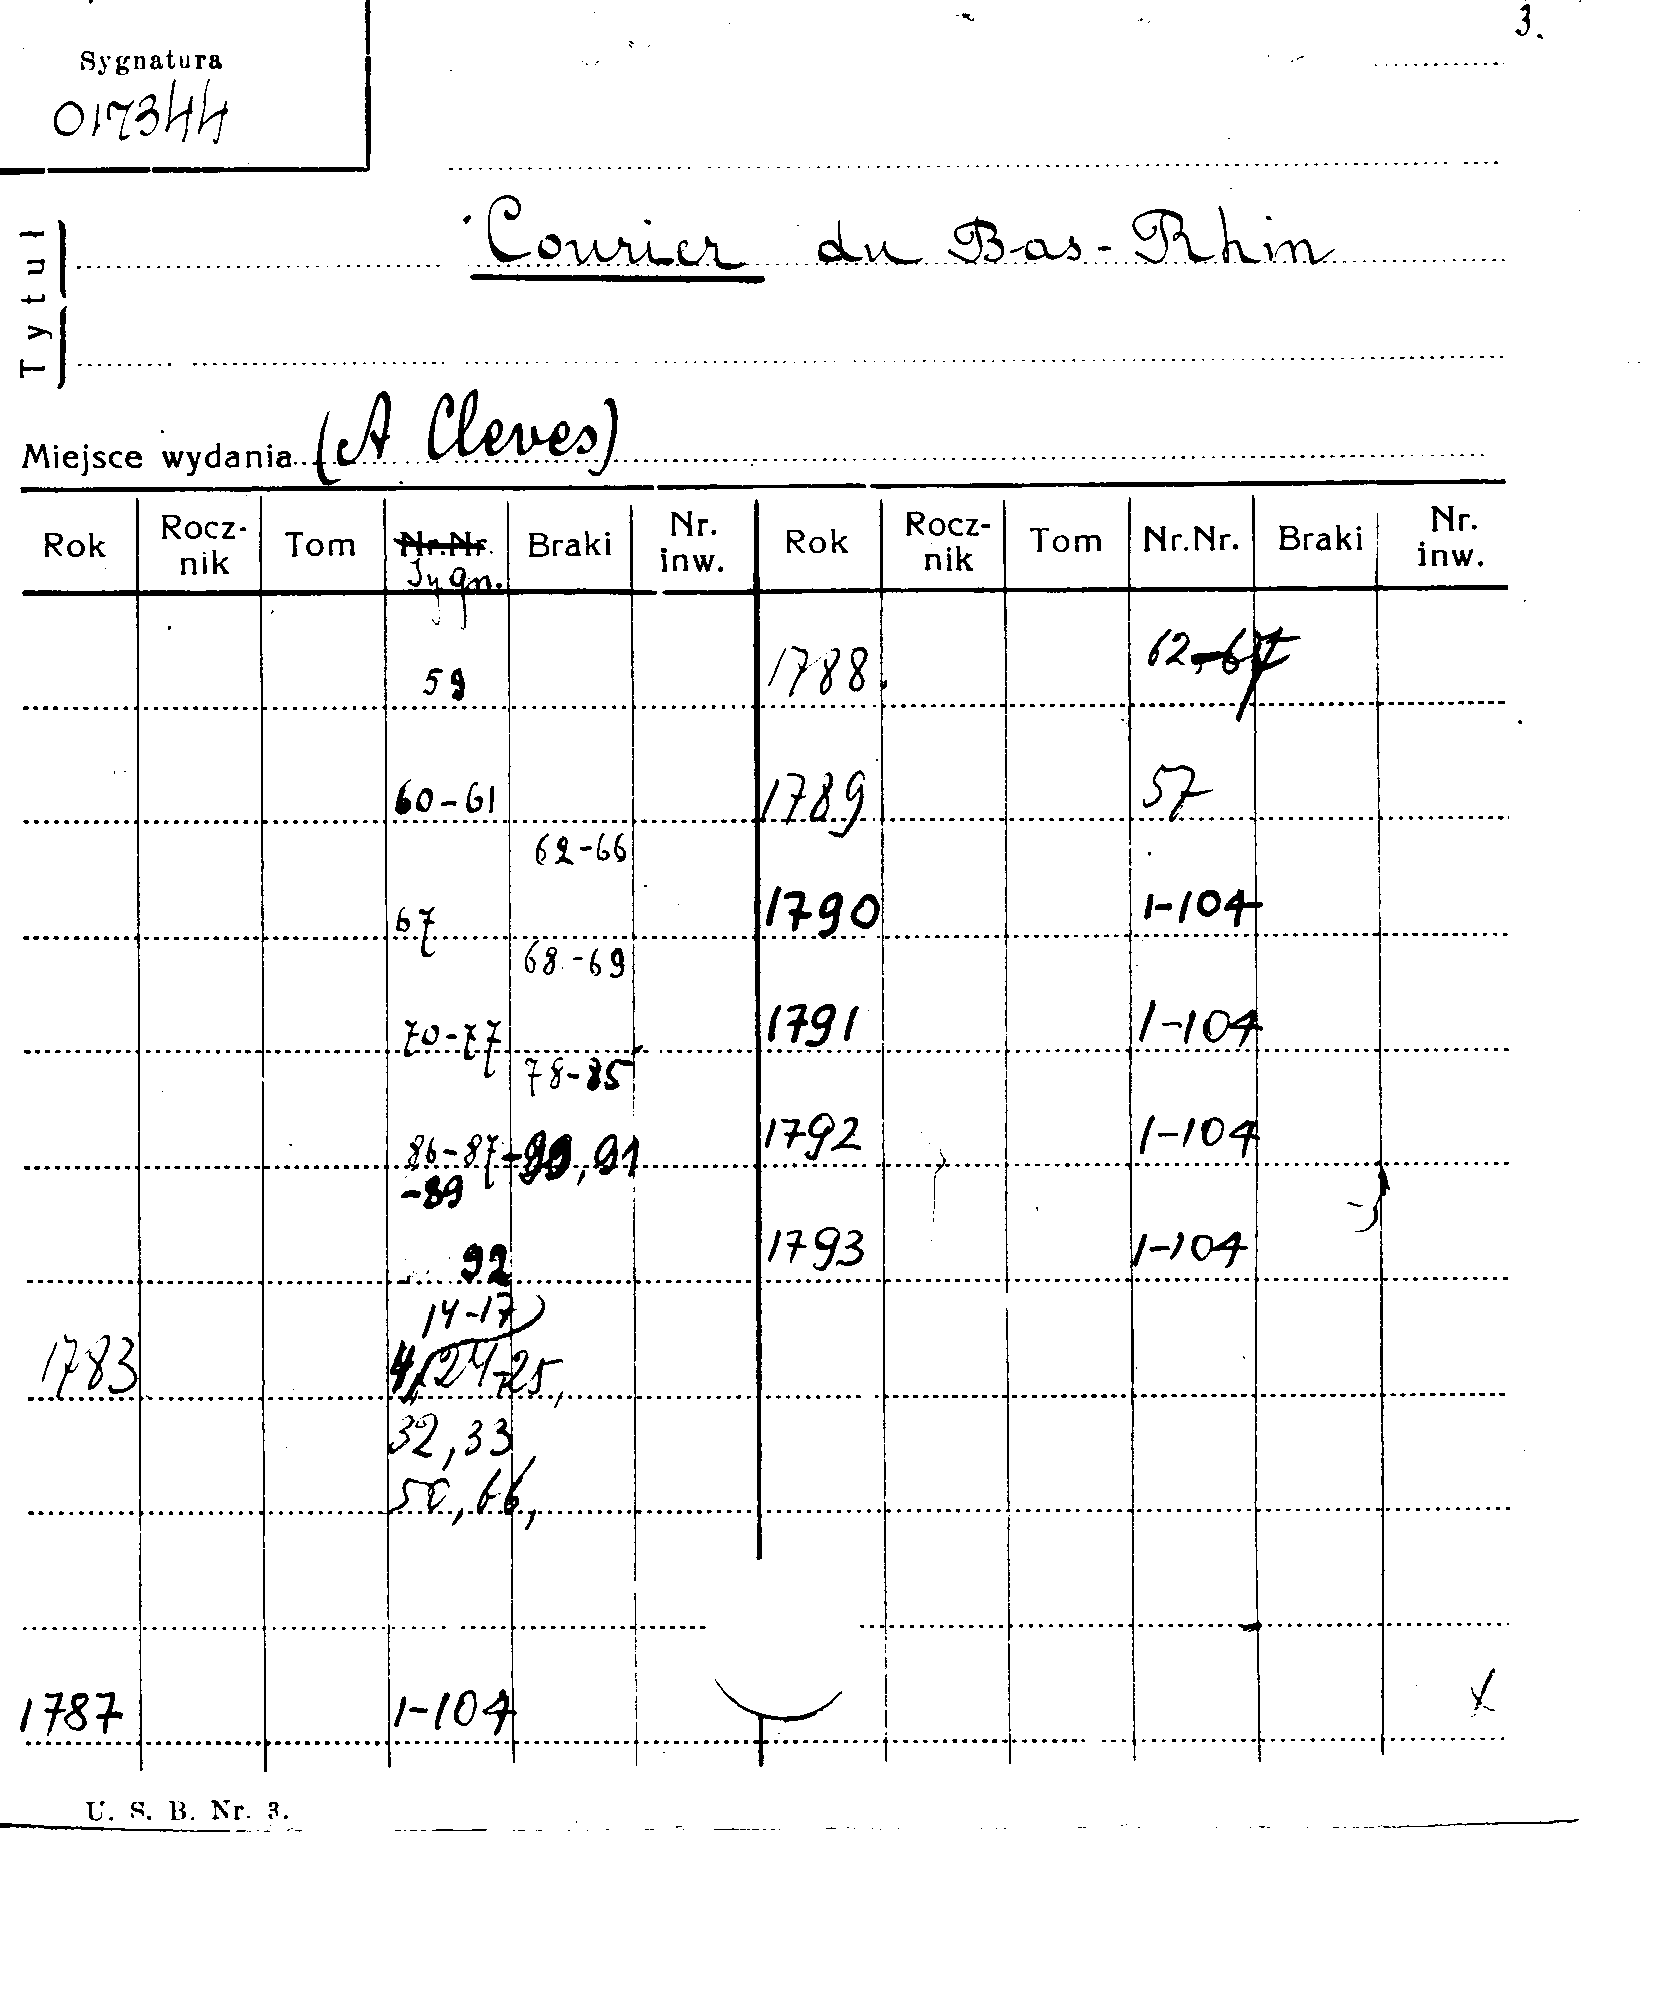 3.
Sygnatura
017344
Tytuł
Courier du Bas-Rhin
Miejsce wydania (A Cleves)
Rok Rocz-nik Tom Nr.Nr. Sygn. Braki Nr. inw. Rok Rocz-nik Tom Nr.Nr. Braki Nr. inw.
59 1788. 62,-67
60-61 1789 57
62-66
67 1790 1-104
68-69
70-77 1791 1-104
78-85
86-87 91 1792 1-104
-89
92 1793 1-104
14-17
1783 4, 24-25,
32, 33
50, 66,
1787 1-104 x
U. S. B. Nr. 3.